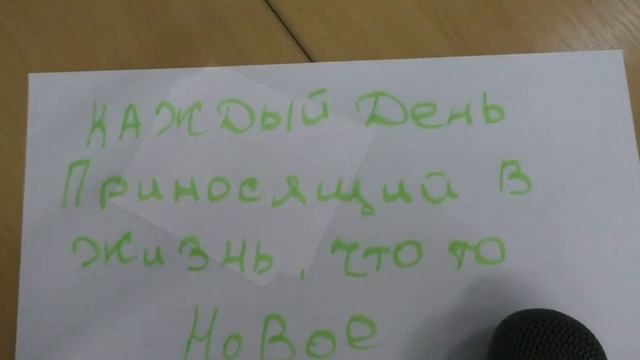 КАЖДЫЙ ДЕНЬ
ПРИНОСЯЩИЙ В
ЖИЗНЬ, ЧТО ТО
НОВОЕ